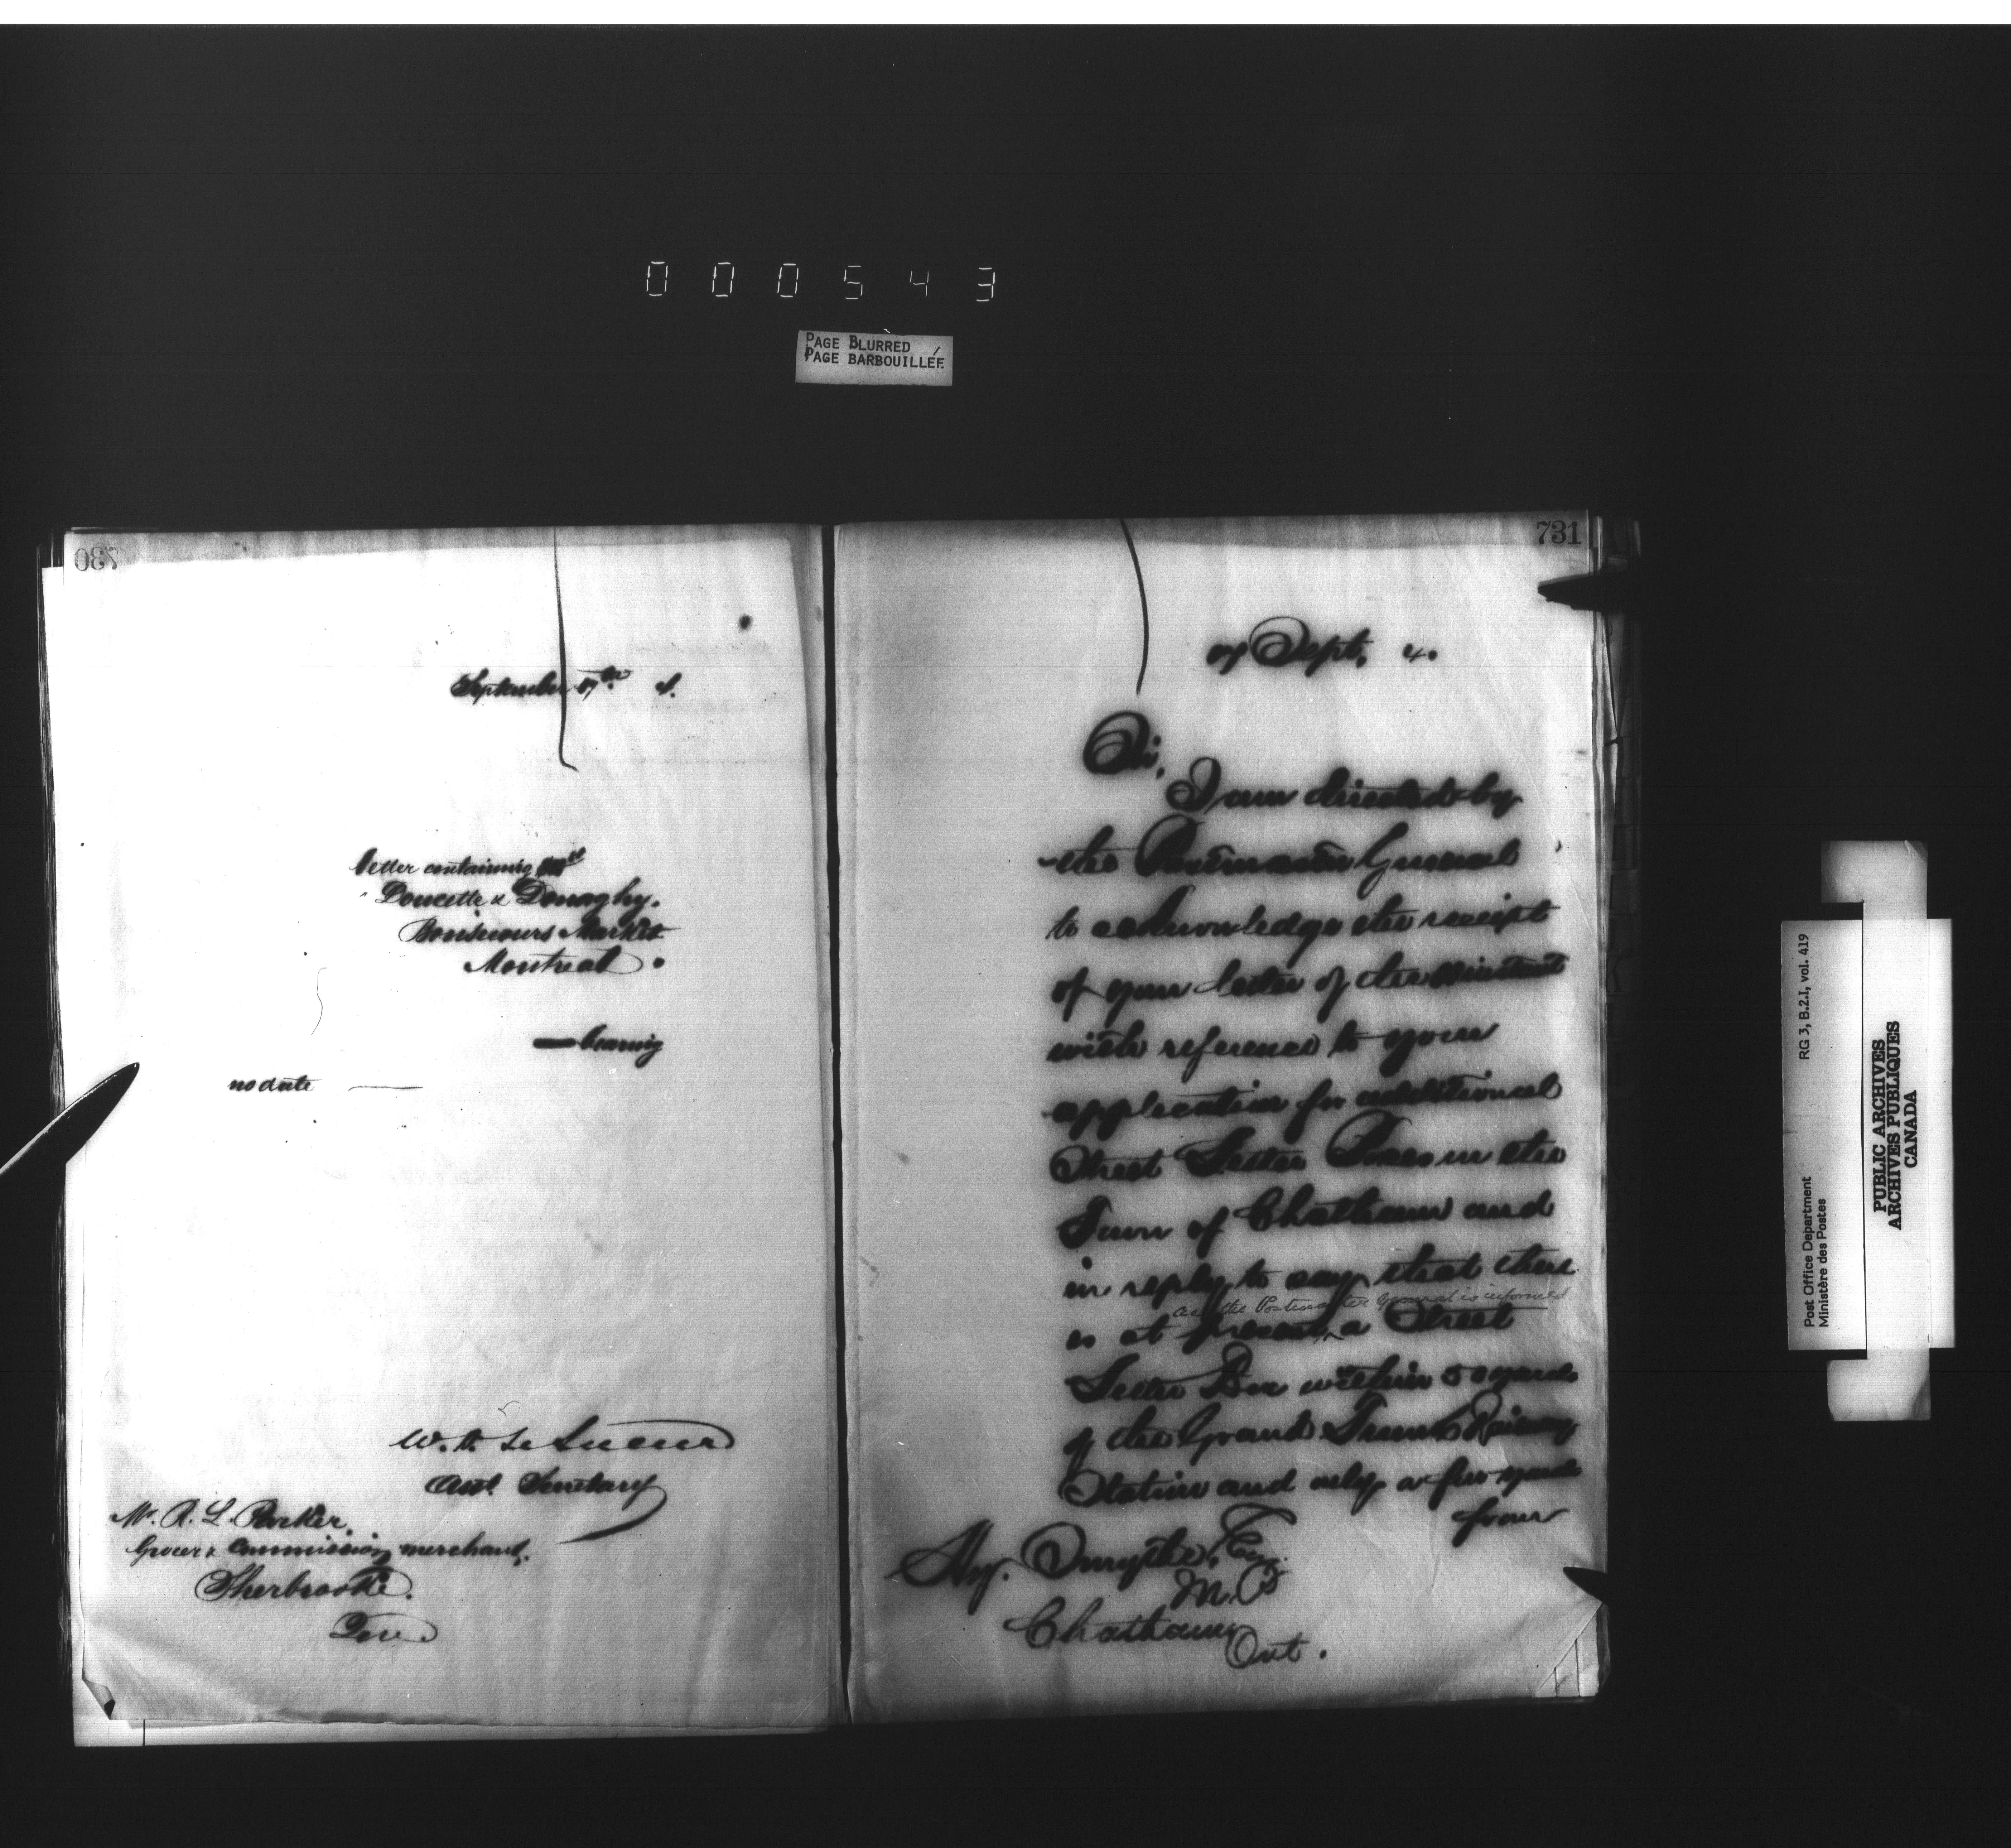 000543
PAGE BLURRED
PAGE BARBOUILLÉE
730
September 17th 4.
letter containing
Doucette & Donaghy.
Bonsecours Market
Montreal.
bearing
no date
W. D. Le Sueur
Asst. Secretary
Mr. R. L. Parker
Grocer & Commission merchant,
Sherbrooke.
Que
731
17 Sept. 4.
Sir,
I am directed by
the Postmaster General
to acknowledge the receipt
of your letter of the instant
with reference to your
application for additional
Street Letter Boxes in the
Town of Chatham and
in reply to say that there
as the Postmaster General is informed
is at present, a Street
Letter Box within 50 yards
of the Grand Trunk Railway
Station and only a few yards
from
Hy. Smythe, Esq.
M.P.
Chatham
Ont.
Post Office Department
Ministère des Postes
RG 3, B.2.I, vol. 419
PUBLIC ARCHIVES
ARCHIVES PUBLIQUES
CANADA